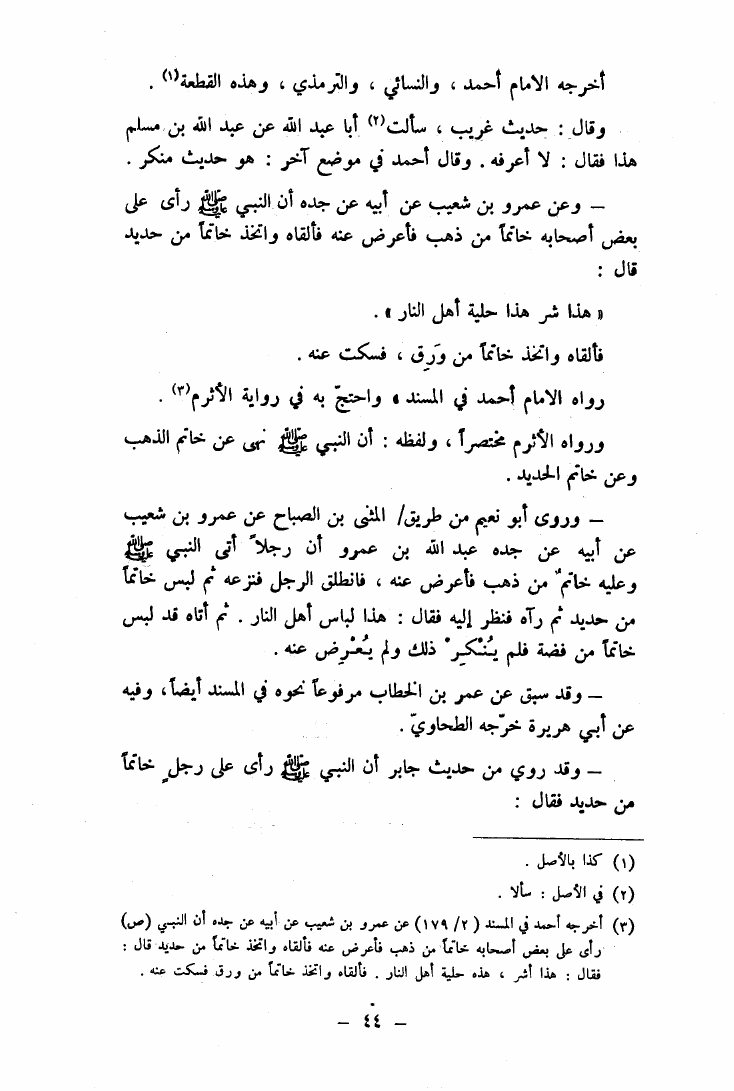 أخرجه الامام أحمد ، والنسائي ، والترمذي ، وهذه القطعة(١) .
وقال : حديث غريب ، سألت(٢) أبا عبد الله عن عبد الله بن مسلم
هذا فقال : لا أعرفه . وقال أحمد في موضع آخر : هو حديث منكر .
– وعن عمرو بن شعيب عن أبيه عن جده أن النبي ﷺ رأى على
بعض أصحابه خاتماً من ذهب فأعرض عنه فألقاه واتخذ خاتماً من حديد
قال :
« هذا شر هذا حلية أهل النار » .
فألقاه واتخذ خاتماً من وَرِق ، فسكت عنه .
رواه الامام أحمد في المسند » واحتجّ به في رواية الأثرم(٣) .
ورواه الأثرم مختصراً ، ولفظه : أن النبي ﷺ نهى عن خاتم الذهب
وعن خاتم الحديد .
– وروى أبو نعيم من طريق/ المثنى بن الصباح عن عمرو بن شعيب
عن أبيه عن جده عبد الله بن عمرو أن رجلاً أتى النبي ﷺ
وعليه خاتمٌ من ذهب فأعرض عنه ، فانطلق الرجل فنزعه ثم لبس خاتماً
من حديد ثم رآه فنظر إليه فقال : هذا لباس أهل النار . ثم أتاه قد لبس
خاتماً من فضة فلم يُنْكِرْ ذلك ولم يُعْرِض عنه .
– وقد سبق عن عمر بن الخطاب مرفوعاً نحوه في المسند أيضاً ، وفيه
عن أبي هريرة خرّجه الطحاويّ .
– وقد روي من حديث جابر أن النبي ﷺ رأى على رجلٍ خاتماً
من حديد فقال :
(١) كذا بالأصل .
(٢) في الأصل : سألا .
(٣) أخرجه أحمد في المسند ( ٢/ ١٧٩ ) عن عمرو بن شعيب عن أبيه عن جده أن النبي (ص)
رأى على بعض أصحابه خاتماً من ذهب فأعرض عنه فألقاه واتخذ خاتماً من حديد قال :
فقال : هذا أشر ، هذه حلية أهل النار . فألقاه واتخذ خاتماً من ورق فسكت عنه .
– ٤٤ –